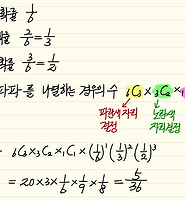 확률 1/6
확률 2/6 = 1/3
확률 3/6 = 1/2
파파-를 나열하는 경우의 수 ₆C₃ × ₃C₂ × ₁
파란색 자리 결정
노란색 자리 결정
₆C₃ × ₃C₂ × ₁C₁ × (1/6)¹ (1/3)² (1/2)³
= 20 × 3 × 1/6 × 1/9 × 1/8 = 5/36